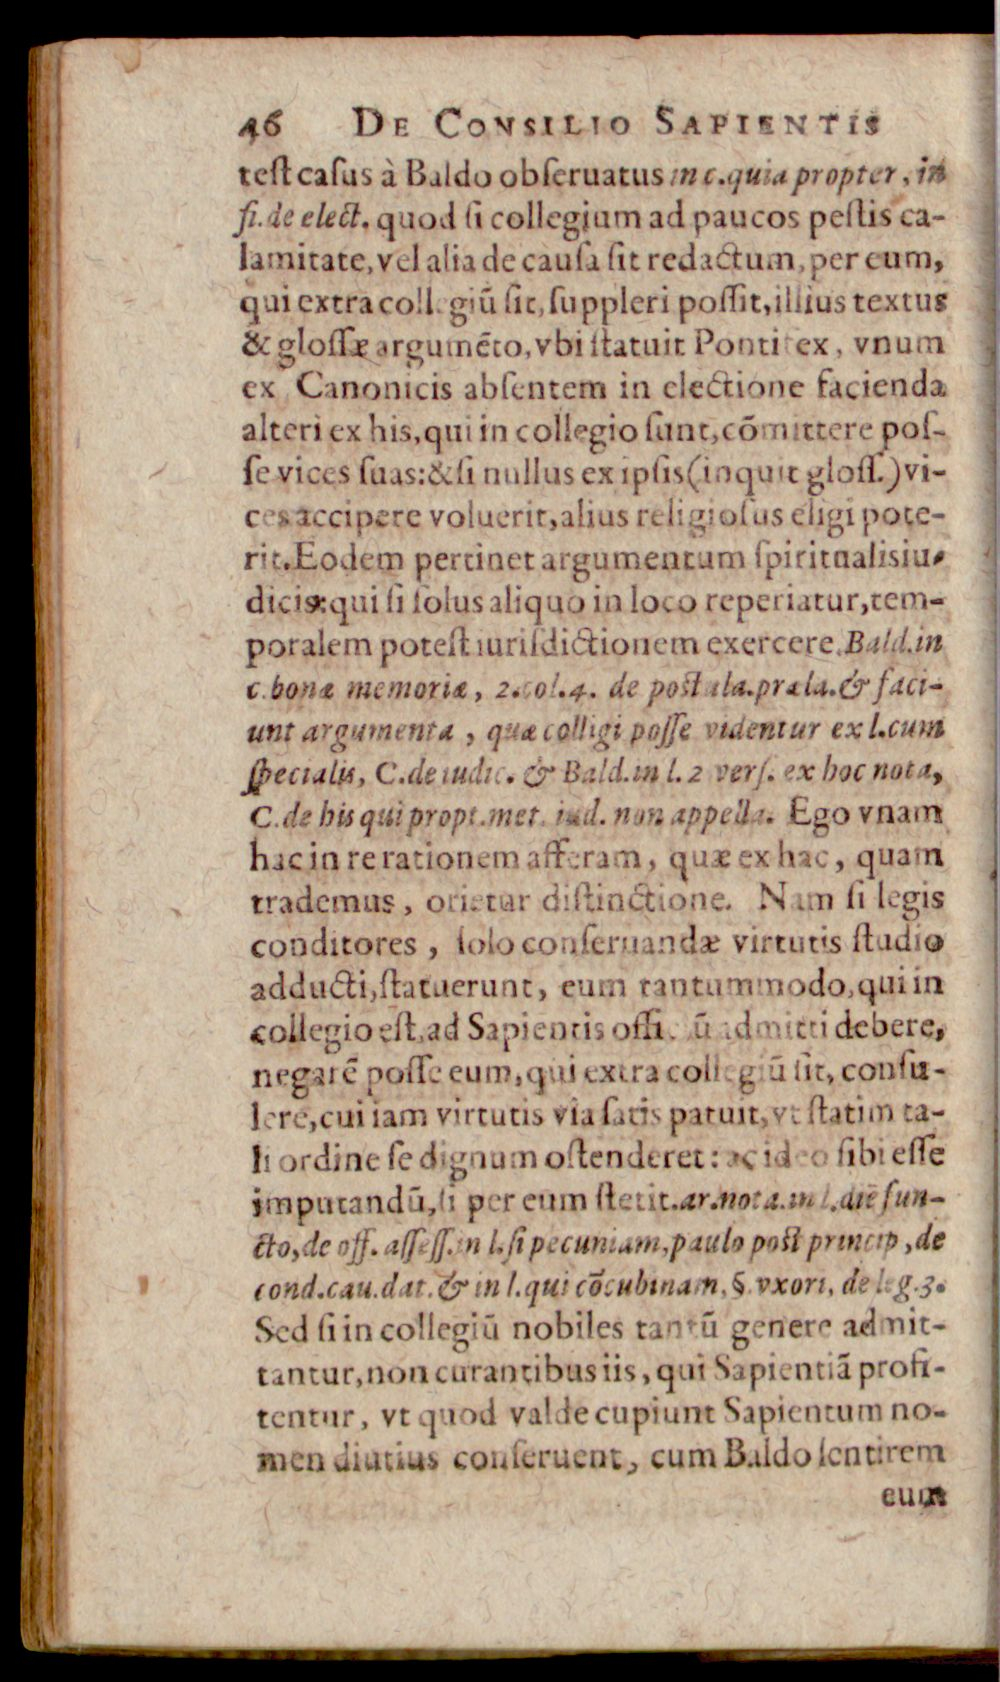 46 DE CONSILIO SAPIENTIS
test casus à Baldo obseruatus in c.quia propter, in
fi. de elect. quod si collegium ad paucos pestis ca-
lamitate, vel alia de causa sit redactum, per eum,
qui extra collegiū sit, suppleri possit, illius textus
& glossæ argumēto, vbi statuit Pontifex, vnum
ex Canonicis absentem in electione facienda
alteri ex his, qui in collegio sunt, cōmittere pos-
se vices suas: & si nullus ex ipsis (inquit gloss.) vi-
ces accipere voluerit, alius religiosus eligi pote-
rit. Eodem pertinet argumentum spiritualis iu-
dicis: qui si solus aliquo in loco reperiatur, tem-
poralem potest iurisdictionem exercere. Bald. in
c. bonæ memoriæ, 2. col. 4. de postula. præla. & faci-
unt argumenta, quæ colligi posse videntur ex l. cum
specialis, C. de iudic. & Bald. in l. 2 vers. ex hoc nota,
C. de his qui propt. met. iud. non appella. Ego vnam
hac in re rationem afferam, quæ ex hac, quam
trademus, orietur distinctione. Nam si legis
conditores, solo conseruandæ virtutis studio
adducti, statuerunt, eum tantummodo, qui in
collegio est, ad Sapientis offi.ū admitti debere,
negarē posse eum, qui extra collegiū sit, consu-
lere, cui iam virtutis via satis patuit, vt statim ta-
li ordine se dignum ostenderet: ac ideo sibi esse
imputandū, si per eum stetit. ar. nota. in l. diē fun-
cto, de off. assess. in l. si pecuniam, paulo post princip, de
cond. cau. dat. & in l. qui cōcubinam, §. vxori, de leg. 3.
Sed si in collegiū nobiles tantū genere admit-
tantur, non curantibus iis, qui Sapientiā profi-
tentur, vt quod valde cupiunt Sapientum no-
men diutius conseruent, cum Baldo sentirem
eum